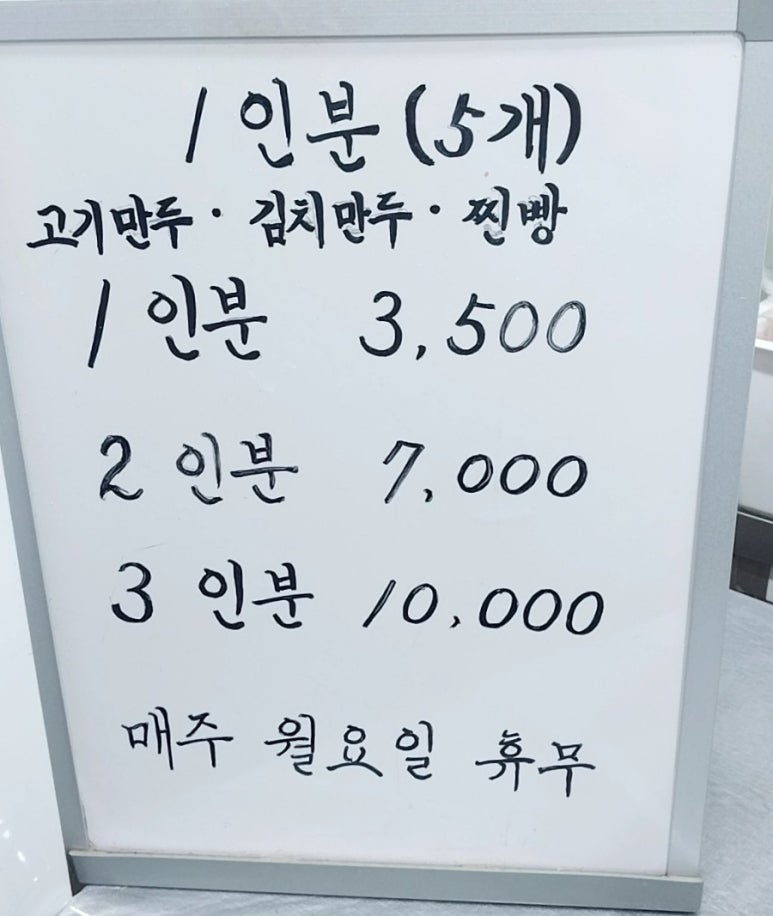 1인분 (5개)
고기만두 · 김치만두 · 찐빵
1인분 3,500
2인분 7,000
3인분 10,000
매주 월요일 휴무